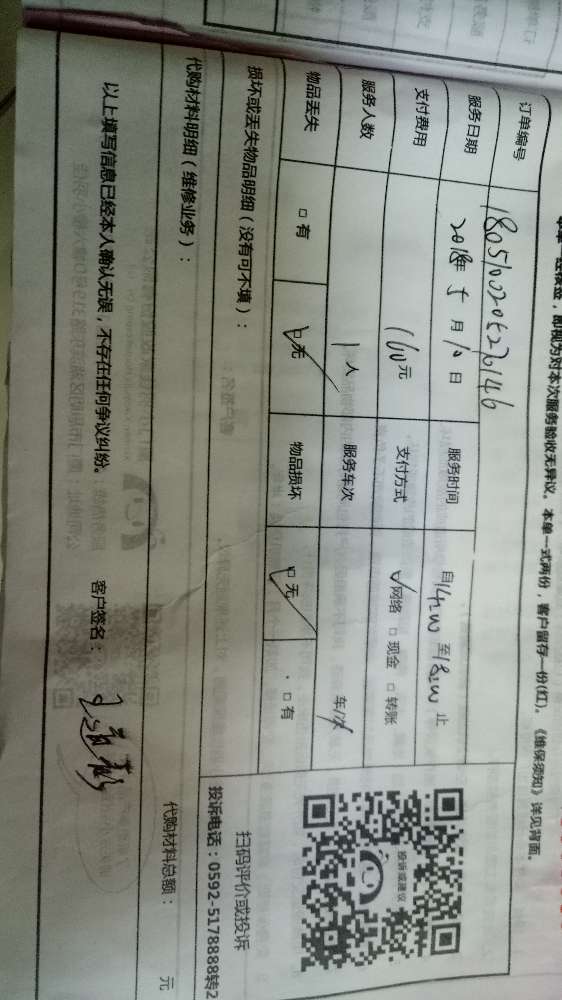 单一经核签，即视为对本次服务验收无异议。本单一式两份，客户留存一份(红)。《维保须知》详见背面。
订单编号 1805100205226146
服务日期 2018年5月10日 服务时间 自14:00至18:00止
支付费用 160元 支付方式 网络 □现金 □转账
服务人数 1人 服务车次 车/次
物品丢失 □有 □无 物品损坏 □无 □有
损坏或丢失物品明细（没有可不填）：
代购材料明细（维修业务）：
代购材料总额： 元
以上填写信息已经本人确认无误，不存在任何争议纠纷。 客户签名：
投诉或建议
扫码评价或投诉
投诉电话：0592-5178888转2